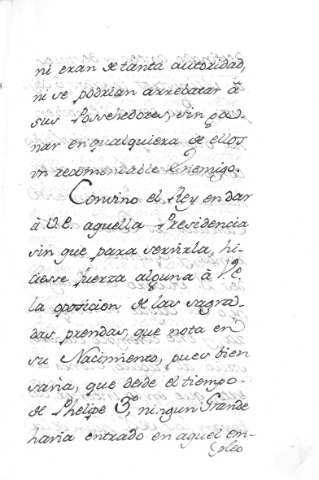 ni eran de tanta autoridad,
ni se podrian arrebatar â
sus Possehedores, sin ga-
nar en qualquiera de ellos
un recomendable Enemigo.
Convino el Rey en dar
â V.E. aquella Presidencia
sin que para servirla, hi-
ciesse fuerza alguna â VE
la oposicion de las sagra-
das prendas, que nota en
su Nacimiento, pues bien
savia, que desde el tiempo
de Phelipe 3º, ningun Grande
havia entrado en aquel em-
pleo